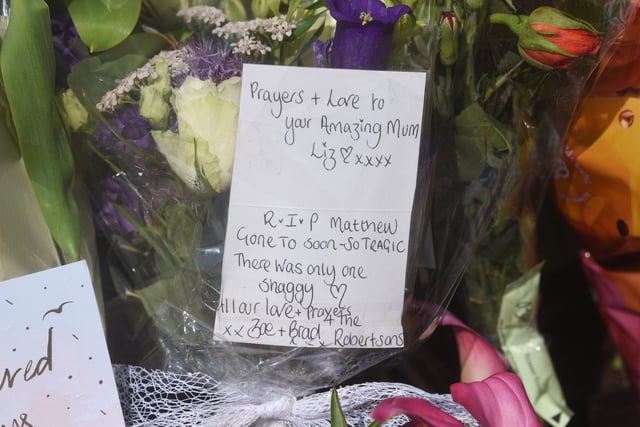 Prayers + Love to
your Amazing Mum
Liz ♡ xxxx
R.I.P Matthew
GONE TO Soon - SO TRAGIC
There was only one
Shaggy ♡
All our love + Prayers
xx Zoe + Brad + The
x x x Robertsons